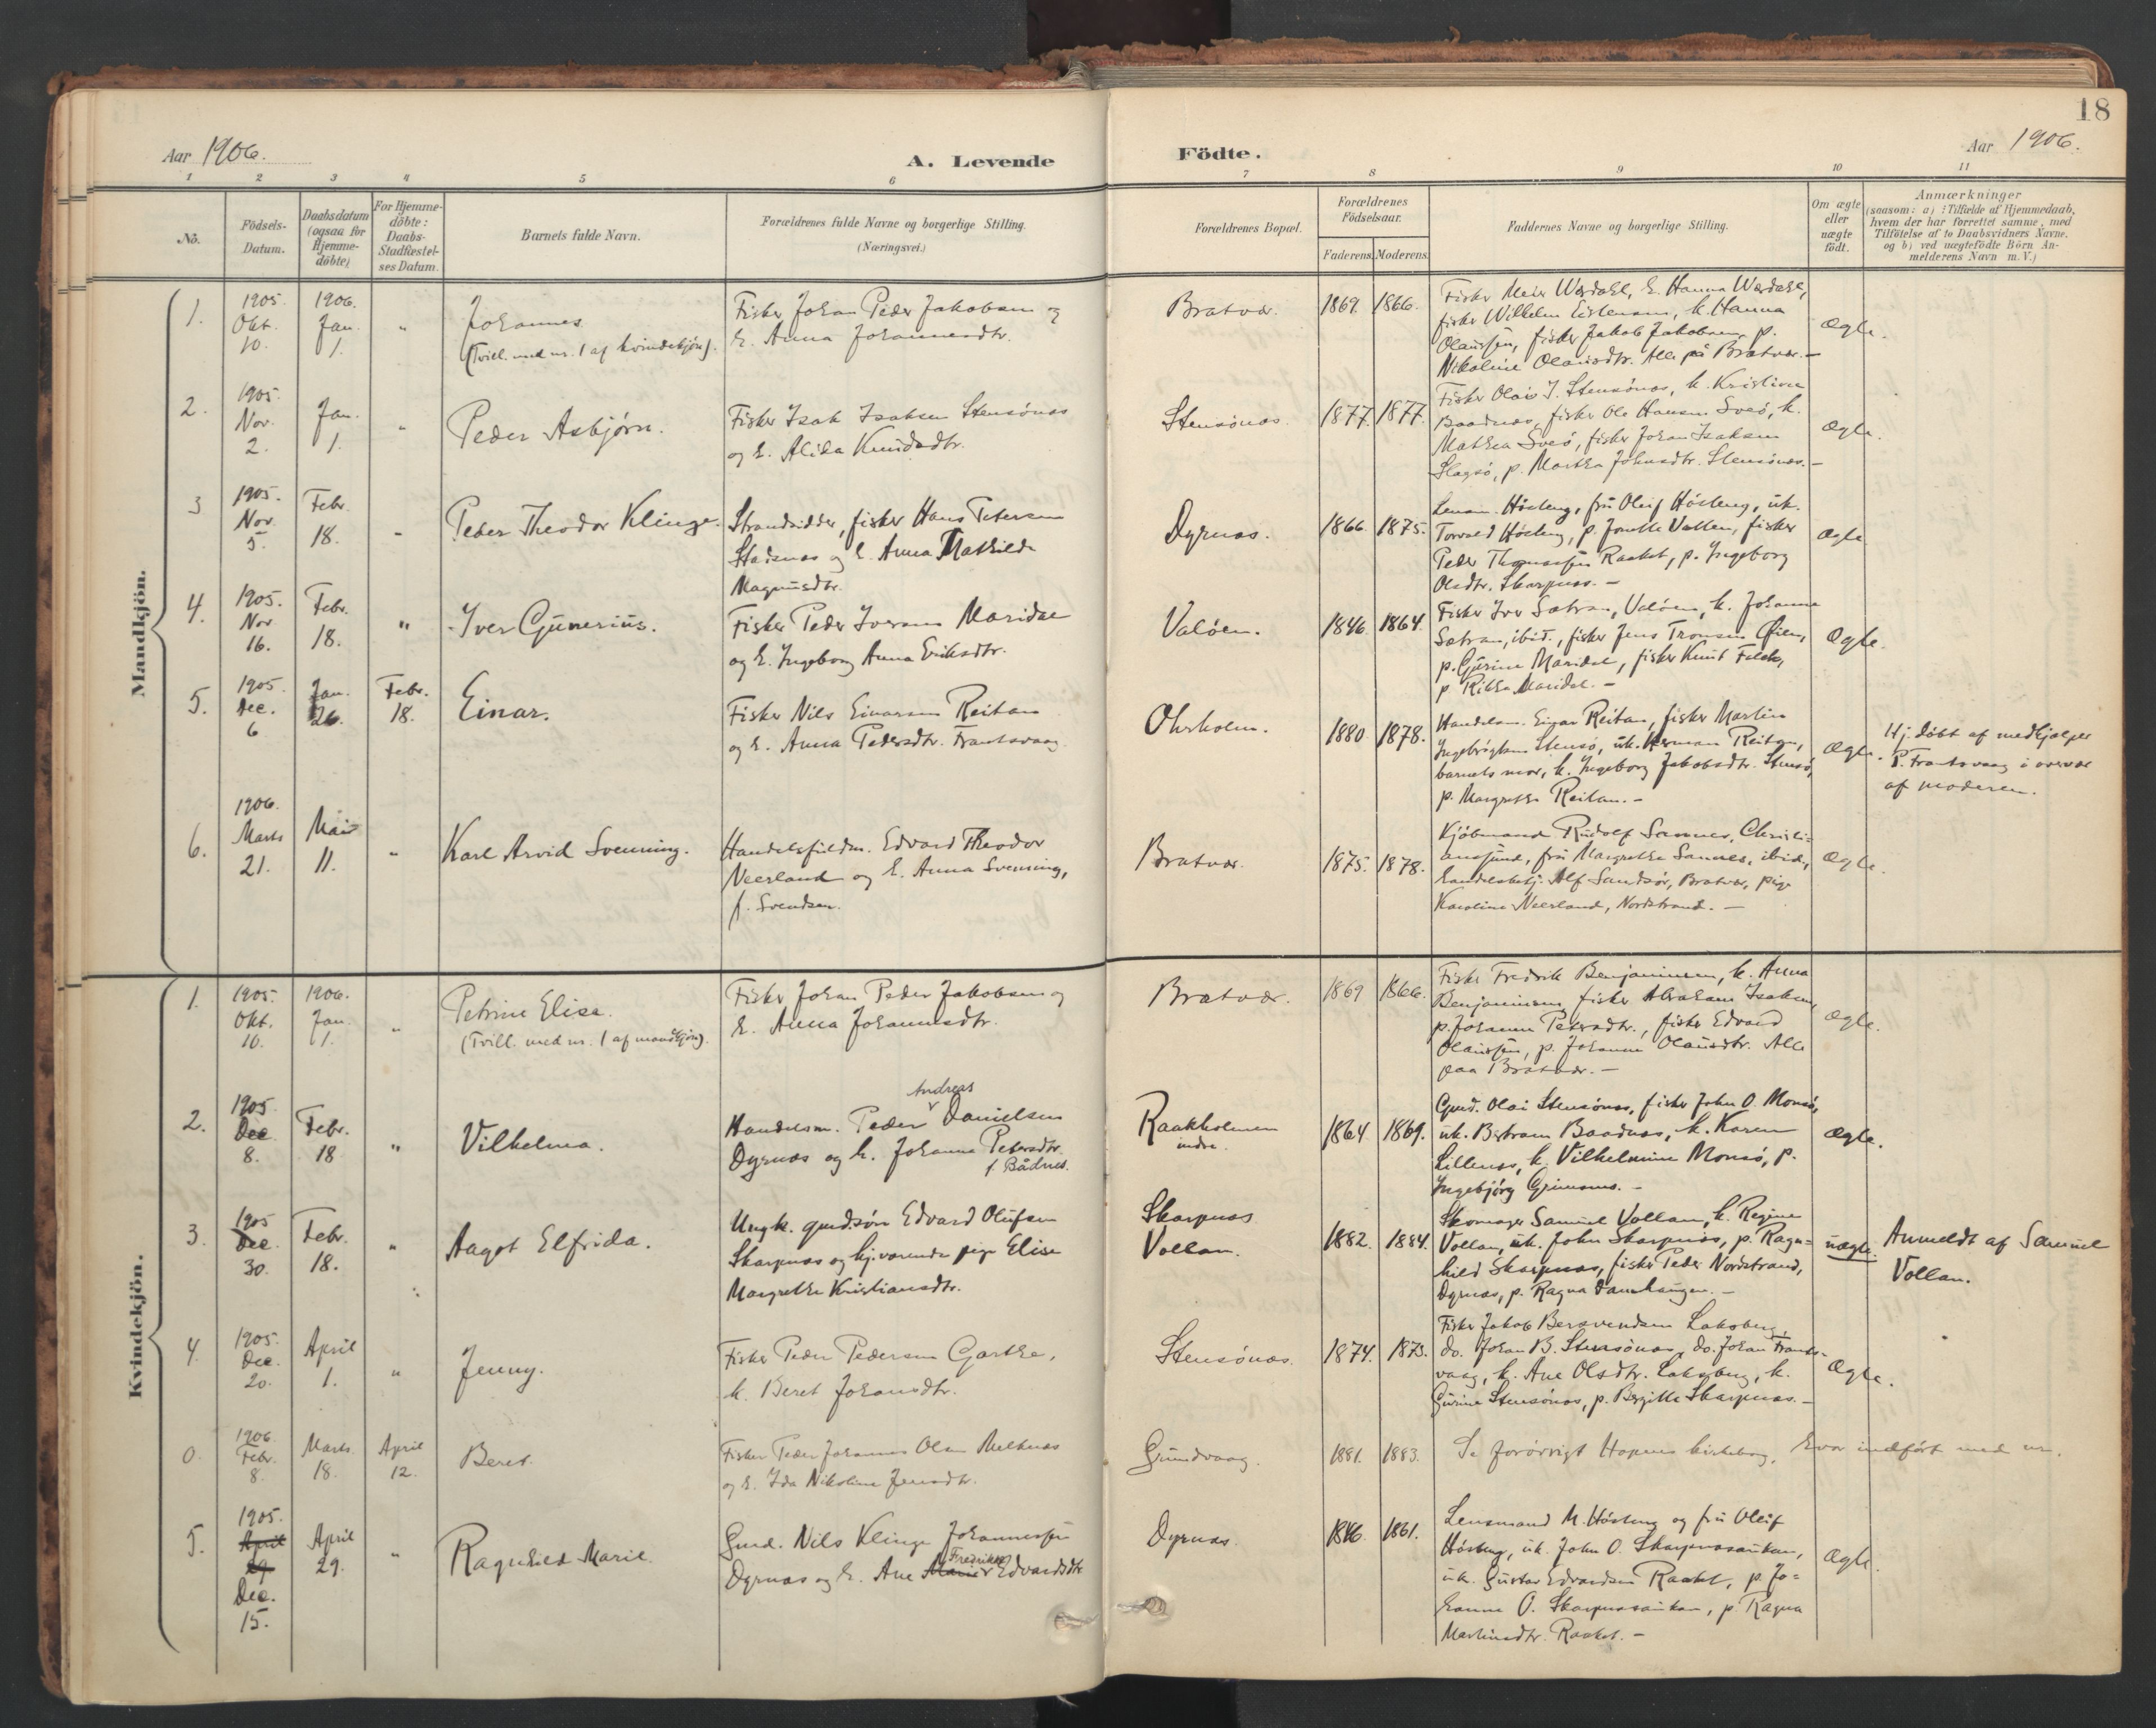 18
Aar 1906.
A. Levende Födte.
Aar 1906.
1 2 3 4 5 6 7 8 9 10 11
Nö.
Födsels-
Datum.
Daabsdatum
(ogsaa for
Hjemme-
döbte)
For Hjemme-
döbte:
Daabs-
Stadfæstel-
ses Datum.
Barnets fulde Navn.
Forældrenes fulde Navne og borgerlige Stilling.
(Næringsvei.)
Forældrenes Bopæl.
Forældrenes
Födselsaar.
Faderens. Moderens.
Faddernes Navne og borgerlige Stilling.
Om ægte
eller
uægte
födt.
Anmærkninger
(saasom: a) i Tilfælde af Hjemmedaab,
hvem der har forrettet samme, med
Tilföielse af to Daabsvidners Navne.
og b) ved uægtefödte Börn An-
melderens Navn m. V.)
Mandkjön.
1.
1905.
Okt.
10.
1906.
Jan.
1.
"
Johannes
(Tvill. med nr. 1 af kvindekjøn).
Fisker Johan Peder Jakobsen og
h. Anna Johannesdtr.
Bratvær.
1869. 1866.
fisker Wilhelm h. Hanna
Olaussen, fisker Jakob Jakobsen, p.
Nikoline Olausdtr. Alle på Bratvær.-
Ægte.
2.
1905.
Nov.
2.
Jan.
1.
"
Peder Asbjørn.
Fisker Isak Isaksen Stensönæs
og h. Alida Knudsdtr.
Stensönæs.
1877. 1877.
Fisker Olai J. Stensönæs, k. Kristine
Baadnæs, fisker Ole Hansen Sveö, k.
Mathea Sveö, fisker Johan Isaksen
Slagsö, p. Martha Johnsdtr. Stensönæs.-
Ægte.
3
1905.
Nov.
5.
Febr.
18.
"
Peder Theodor Klinge.
Strandsidder, fisker Hans Petersen
Stadsnæs og h. Anna Mathilde
Magnusdtr.
Dyrnæs.
1866. 1875.
Lensm. Høsteng, fru Oluf Høsteng, uk.
Torvald Høsteng, p. Vollen, fisker
Peder Thomassen Raaket, p. Ingeborg
Olsdtr. Skarpnæs.-
Ægte
4.
1905.
Nov
16.
Febr.
18.
"
Iver Gunerius.
Fisker Peder Iversen Maridal
og h. Ingeborg Anna Eriksdtr.
Valöen.
1846. 1864.
Fisker Iver Sætran, Valöen, k. Johanna
Sætran, ibid., fisker Jens Tronsen Öien,
p. Gurine Maridal, fisker Knut
p. Maridal.-
Ægte.
5.
1905
Dec.
6
Jan.
26.
Febr.
18.
Einar.
Fisker Nils Einarsen Reitan
og h. Anna Pedersdtr. Frantsvaag.
Ohrholm.
1880 1878.
Handelsm. Einar Reitan, fisker Martin
Ingebrigtsen Stensö, uk. Herman Reitan,
barnets mor, k. Ingeborg Jakobsdtr. Stensö,
p. Margrethe Reitan.-
Ægte.
Hj. døbt af medhjælper
P. Frantsvaag i overvær
af moderen.
6.
1906.
Marts
21.
Mai
11.
"
Karl Arvid Svenning.
Handelsfuldm. Edvard Theodor
Neerland og h. Anna Svenning,
f. Svendsen.
Bratvær.
1875. 1878.
Kjöbmand Rudolf Sannes, Christi-
ansund, fru Margrethe Sannes, ibid.,
handelsbetj. Alf Sandsör, Bratvær, pige
Karoline Neerland, Nordstrand.-
Ægte.
Kvindekjön.
1.
1905.
Okt.
10.
1906.
Jan.
1.
"
Petrine Elise.
(Tvill. med nr. 1 af mandkjøn).
Fisker Johan Peder Jakobsen og
h. Anna Johannesdtr.
Bratvær.
1869 1866.
Fisker Fredrik Benjaminsen, k. Anna
Benjaminsen, fisker Abraham Isaksen,
p. Johanna Petersdtr., fisker Edvard
Olaussen, p. Johanne Olausdtr. Alle
paa Bratvær.-
Ægte.
2.
1905
Dec
8.
Febr.
18
"
Vilhelma.
Andreas
Handelsm. Peder Danielsen
Dyrnæs og h. Johanna Petersdtr.
f. Bådnes.
Raakholmen
indre.
1864 1869.
Gmd. Olai Stensönæs, fisker John O. Monsö,
uk. Bertram Baadnæs, k. Karen
Lillenæs, k. Vilhelmine Monsö, p.
Ingebjörg Grimsmo.-
Ægte.
3.
1905
Dec
30.
Febr.
18.
"
Aagot Elfrida.
Ungk. gmd.sön Edvard Olufsen
Skarpnæs og hj.værende pige Elise
Margrethe Kristiansdtr.
Skarpnæs
Vollan.
1882. 1884.
Skomager Samuel Vollan, k. Regine
Vollan, uk. John Skarpnæs, p. Ragn-
hild Skarpnæs, fisker Peder Nordstrand,
Dyrnæs, p. Ragna Damhaugen.-
uægte.
Anmeldt af Samuel
Vollan.
4.
1905.
Dec.
20.
April
1.
"
Jenny.
Fisker Peder Pedersen Garthe,
k. Beret Johansdtr.
Stensönæs.
1874. 1873.
Fisker Jakob Bersvendsen Laksberg,
do. Johan B. Stensönæs, do. Johan Frants-
vaag, k. Ane Olsdtr. Laksberg, k.
Gurine Stensönæs, p. Bergitte Skarpnæs.-
Ægte.
0.
1906
Febr.
8.
Marts
18.
April
12.
Beret.
Fisker Peder Johannes Olsen Melknæs
og h. Ida Nikoline Jensdtr.
Gundvaag.
1881. 1883.
Se forövrigt Hopens kirkebog, hvor indfört med nr.
5.
1905.
April
29
Dec.
15.
April
29.
"
Ragnhild Marie.
Gmd. Nils Klinge Johannessen
Dyrnæs og h. Ane Marie Fredrikke Edvardsdtr
Dyrnæs.
1846. 1861.
Lensmand M. Høsteng og fru Oluf
Høsteng, uk. John O. Skarpnæsaunan,
uk. Gustav Edvardsen Raaket, p. Jo=
hanne O. Skarpnæsaunan, p. Ragna
Martinsdtr. Raaket.-
Ægte.